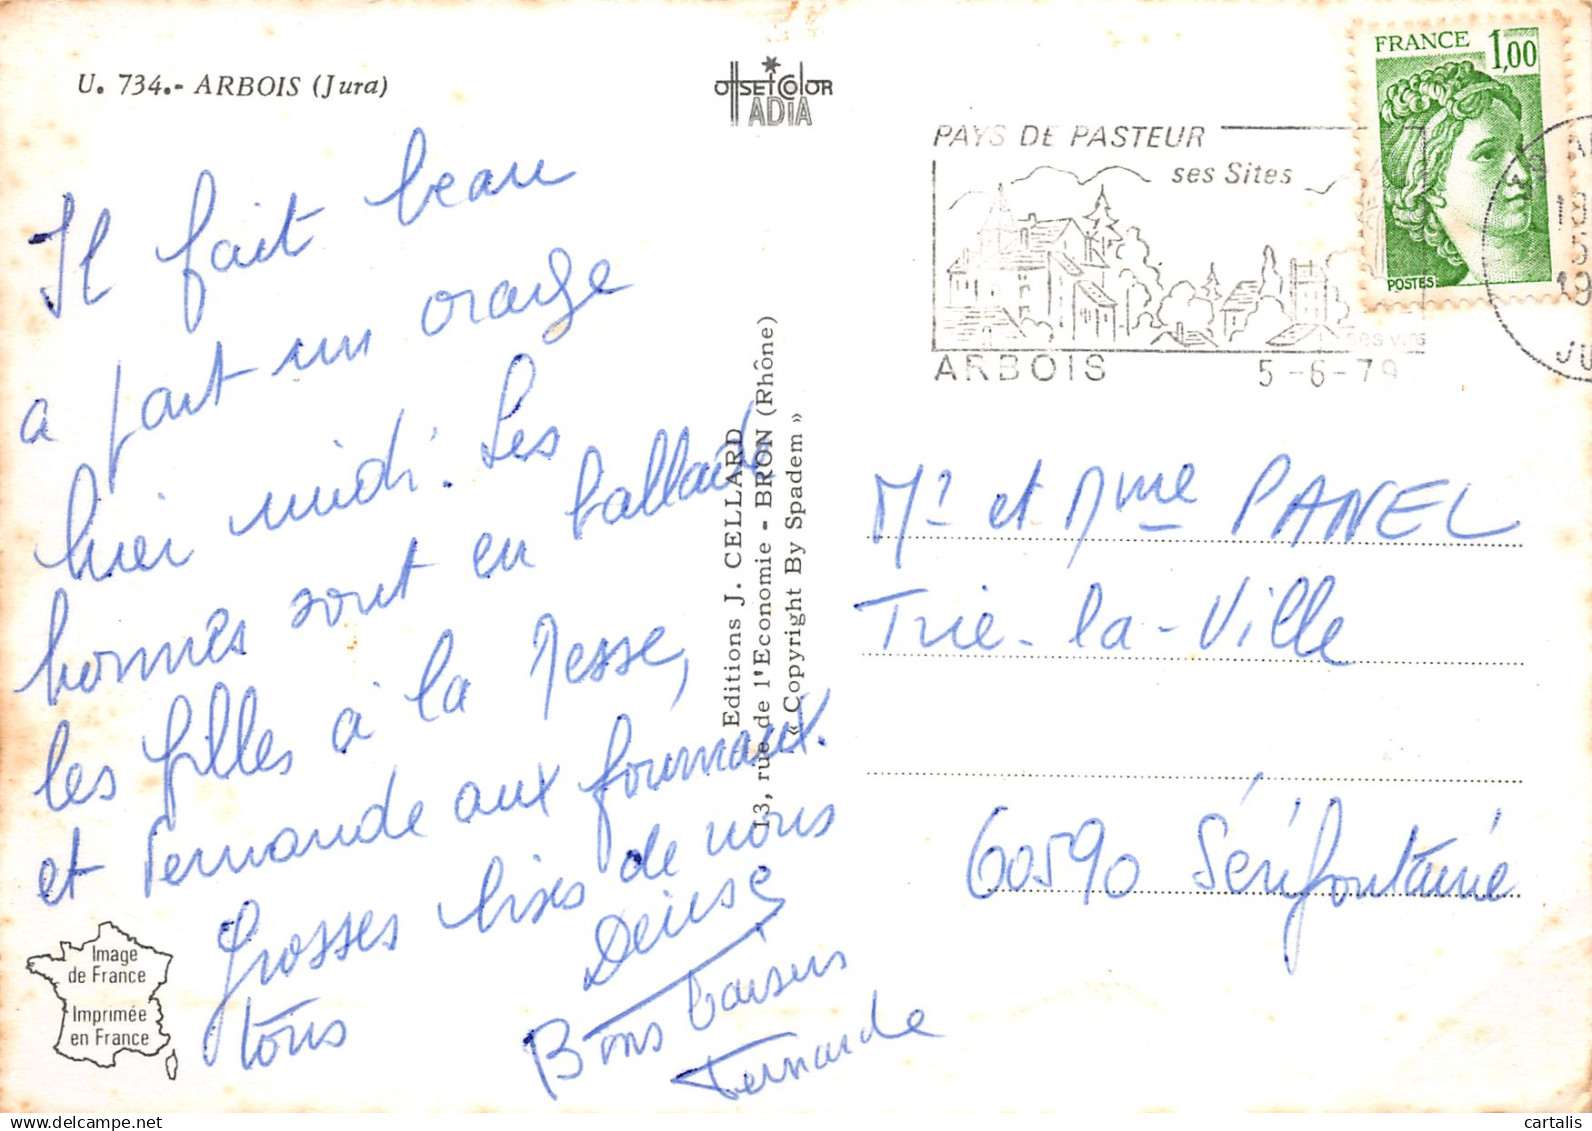 U. 734.- ARBOIS (Jura)
OffSETCOlOR
ADIA
Il fait beau
a part un orage
hier midi. Les
hommes sont en ballade
les filles à la Messe,
et Fernande aux fourneaux.
Grosses bises de nous
tous
Denise
Bons baisers
Fernande
Image
de France
Imprimée
en France
Editions J. CELLARD
13, rue de l'Economie - BRON (Rhône)
« Copyright By Spadem »
PAYS DE PASTEUR
ses Sites
ses vins
ARBOIS 5-6-79
FRANCE 1,00
POSTES
39
JU
Mr et Mme PANEL
Trie-la-Ville
60590 Sérifontaine
cartalis